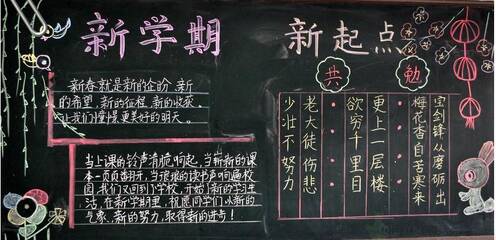 新学期 新起点
新春就是新的企盼、新
的希望、新的征程、新的收获。
让我们憧憬更美好的明天。
当上课的铃声清脆响起，当崭新的课
本一页页翻开，当琅琅的读书声响遍校
园，我们又回到了学校，开始了新的学习生
活，在新学期里，祝愿同学们以新的
气象、新的努力，取得新的进步！
共勉
宝剑锋从磨砺出
梅花香自苦寒来
更上一层楼
欲穷千里目
老大徒伤悲
少壮不努力